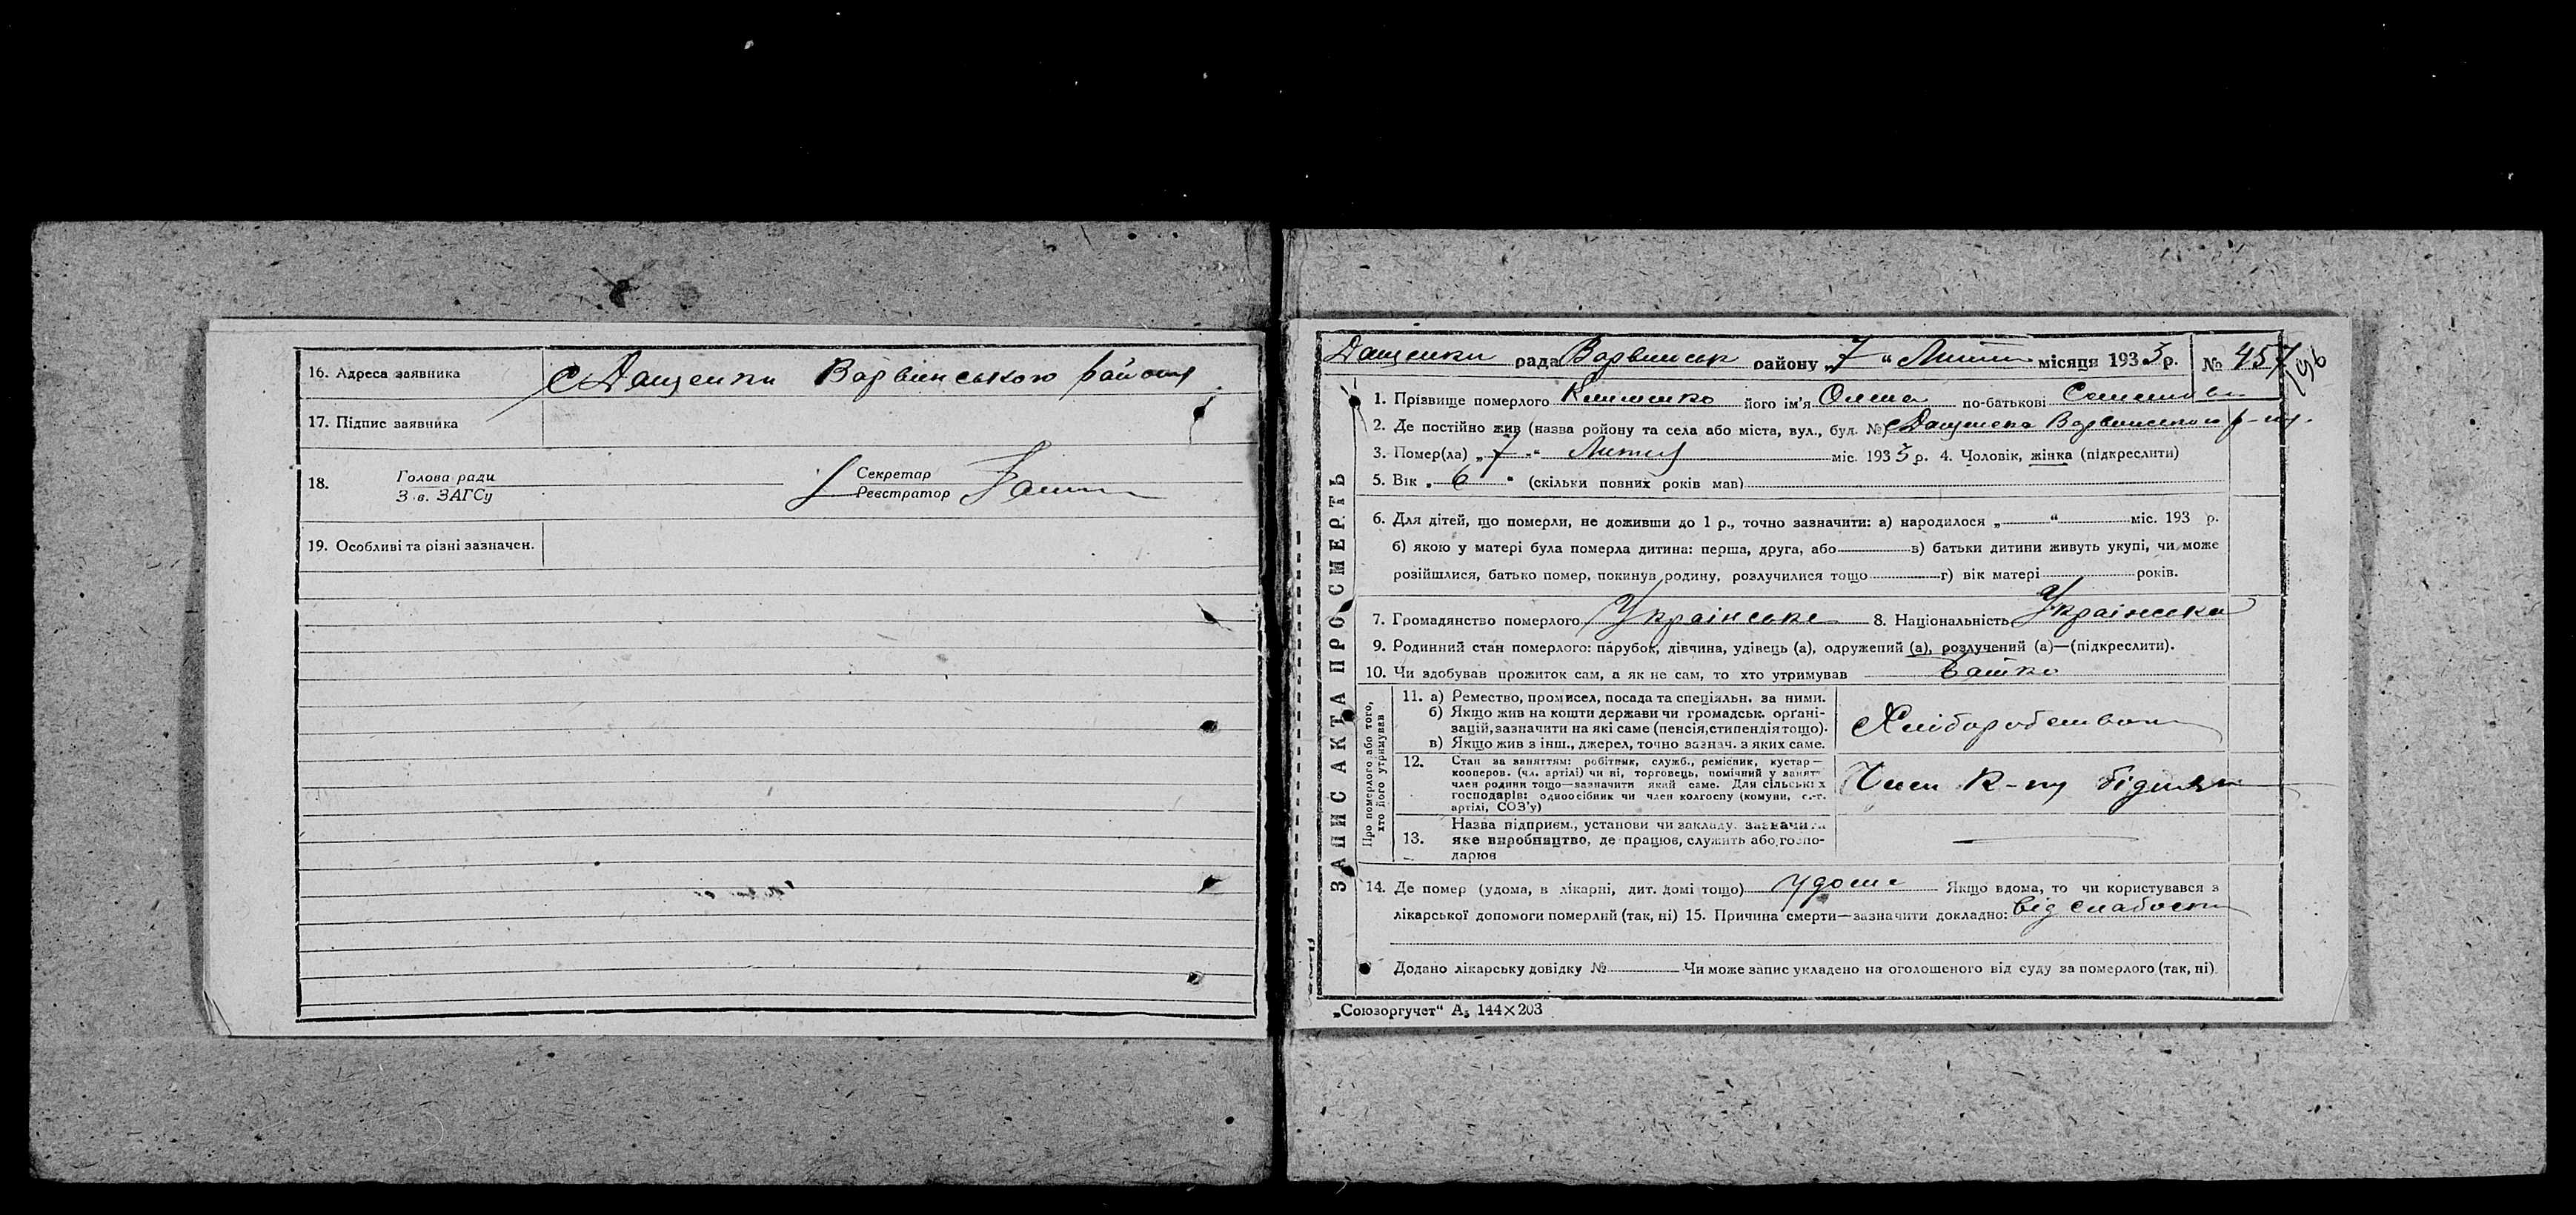 16. Адреса заявника с Дащенки Варвинського району
17. Підпис заявника
18. Голова ради
З в. ЗАГСу
Секретар
Реєстратор
19. Особливі та різні зазначен.
ЗАПИС АКТА ПРО СМЕРТЬ
Дащенки рада Варвинськ району „7“ місяця 1933 р. № 457
196
1. Прізвище померлого його ім'я по-батькові
2. Де постійно жив (назва ройону та села або міста, вул., буд. №) с Дащенки Варвинського р-ну.
3. Помер(ла) „7“ міс. 1933 р. 4. Чоловік, жінка (підкреслити)
5. Вік „6“ (скільки повних років мав)
6. Для дітей, що померли, не доживши до 1 р., точно зазначити: а) народилося „ “ міс. 193 р.
б) якою у матері була померла дитина: перша, друга, або в) батьки дитини живуть укупі, чи може
розійшлися, батько помер, покинув родину, розлучилися тощо г) вік матері років.
7. Громадянство померлого Українське 8. Національність Українська
9. Родинний стан померлого: парубок, дівчина, удівець (а), одружений (а), розлучений (а)—(підкреслити).
10. Чи здобував прожиток сам, а як не сам, то хто утримував Батько
Про померлого або того,
хто його утримував
11. а) Ремество, промисел, посада та спеціяльн. за ними.
б) Якщо жив на кошти держави чи громадськ. орґані-
зацій, зазначити на які саме (пенсія, стипендія тощо).
в) Якщо жив з інш., джерел, точно зазнач. з яких саме.
Хліборобством
12. Стан за заняттям: робітник, служб., ремісник, кустар—
кооперов. (чл. артілі) чи ні, торговець, помічний у занятт
член родини тощо—зазначити який саме. Для сільських
господарів: одноосібник чи член колгоспу (комуни, с.-г.
артілі, СОЗ'у)
Член К-пу бідняк
13. Назва підприєм., установи чи закладу. зазначити
яке виробництво, де працює, служить або госпо-
дарює
14. Де помер (удома, в лікарні, дит. домі тощо) удома Якщо вдома, то чи користувався з
лікарської допомоги померлий (так, ні) 15. Причина смерти—зазначити докладно: від слабости
Додано лікарську довідку № Чи може запис укладено на оголошеного від суду за померлого (так, ні).
„Союзоргучет“ А5 144×203